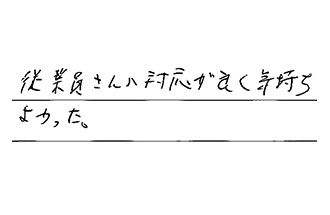 従業員さんの対応が良く気持ち
よかった。